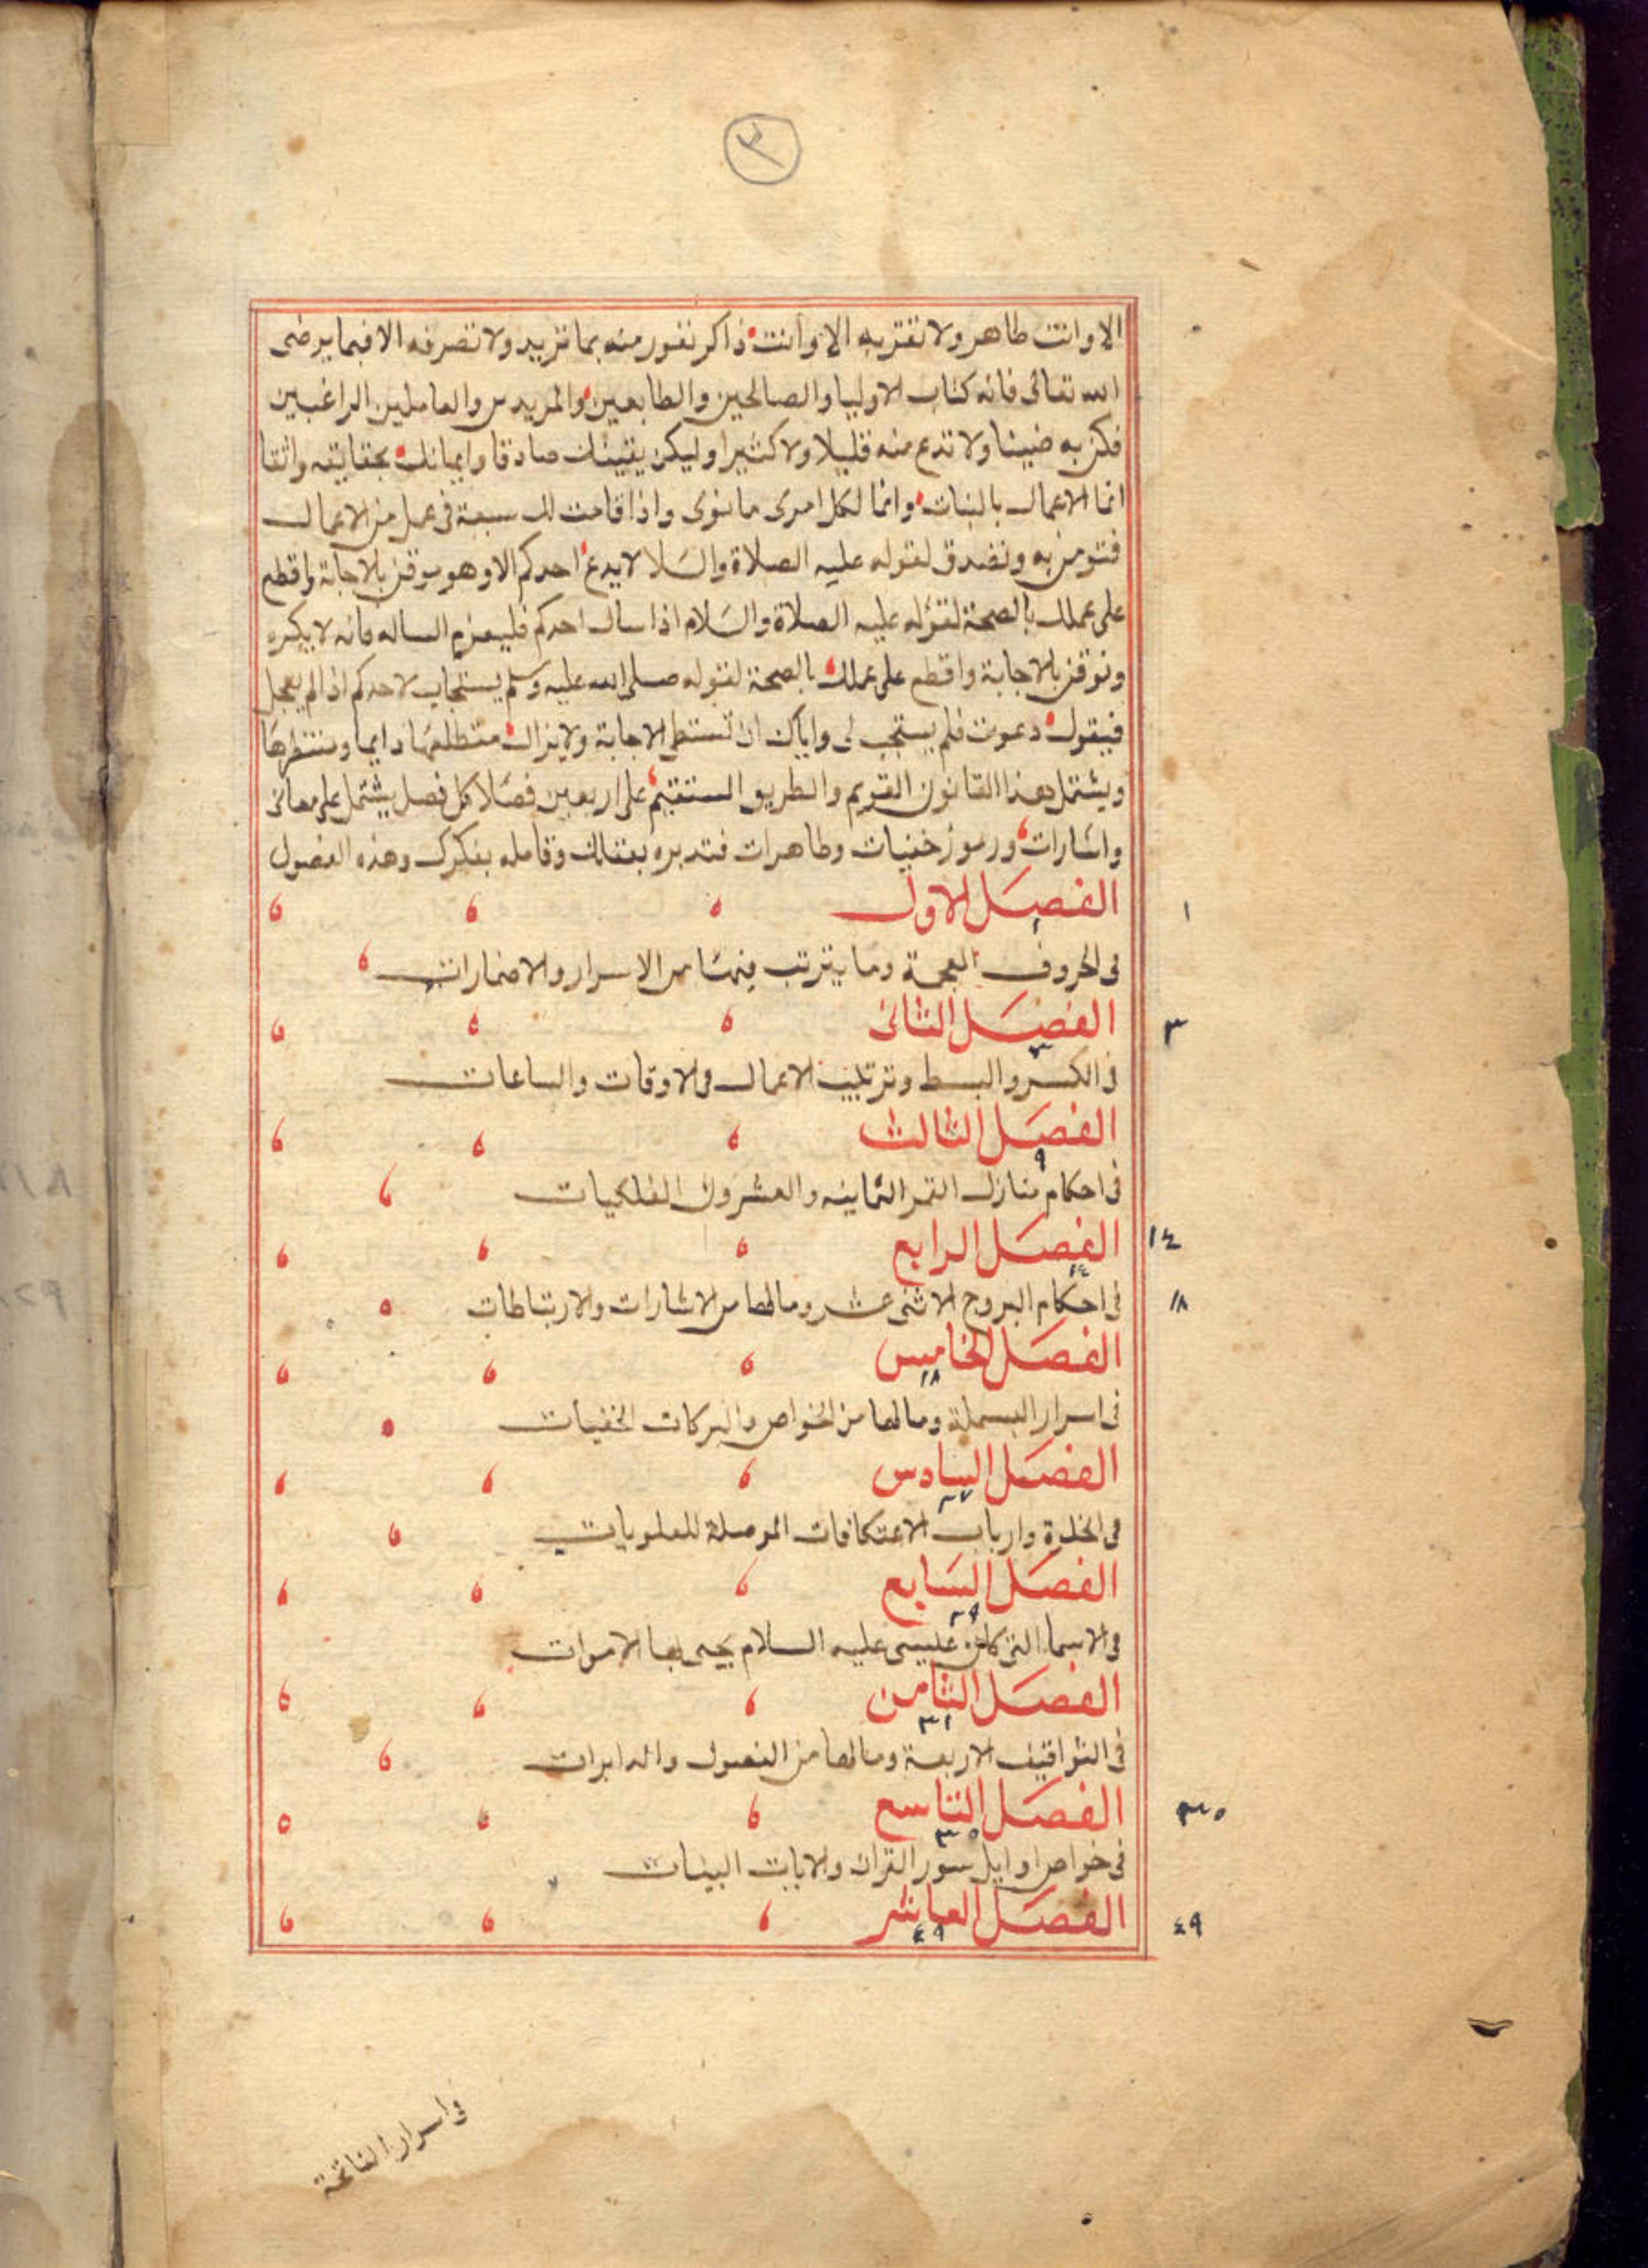 ٢
الا وانت طاهر ولا تقتربه الا وانت ذاكر نفور منه بما تريد ولا تصرفه الا فيما يرضى
الله تعالى فانه كتاب الاوليا والصالحين والطايعين والمريدين والعاملين الراغبين
فكن به ضنينا ولا تدع منه قليلا ولا كثيرا وليكن يقينك صادقا وايمانك بحقايقه واثقا
انما الاعمال بالنيات وانما لكل امرى ما نوى واذا قامت لك سبعة فى عمل من الاعمال
فتومن به وتصدق لقوله عليه الصلاة والسلا لا يدع احدكم الا وهو موقن بالاجابة واقطع
على عملك بالصحة لقوله عليه الصلاة والسلام اذا سال احدكم فليعزم المساله فانه لا يكره
وتوقن بالاجابة واقطع على عملك بالصحة لقوله صلى الله عليه وسلم يستجاب لاحدكم اذا لم يعجل
فيقول دعوت فلم يستجب لى واياك ان تستبطى الاجابة ولا يزال متطلعها دايما ومنتظرها
ويشتمل هذا القانون القويم والطريق المستقيم على اربعين فصلا كل فصل يشتمل على معانى
واشارات ورموز خفيات وظاهرات فتدبره بعقلك وقامله بفكرك وهذه الفصول
الفصل الاول ١
١
فى الحروف المعجمة وما يترتب فيها من الاسرار والاضمارات
الفصل الثانى ٣
٣
فى الكسر والبسط وترتيب الاعمال فى الاوقات والساعات
الفصل الثالث
٩
فى احكام منازل القمر الثمانيه والعشرون الفلكيات
الفصل الرابع ١٤
١٤
فى احكام البروج الاثنى عشر ومالها من الاشارات والارتباطات ١٨
الفصل الخامس
١٨
فى اسرار البسملة ومالها من الخواص والبركات الخفيات
الفصل السادس
٢٧
فى الخلوة وارباب الاعتكافات الموصلة للعلويات
الفصل السابع
٢٩
فى الاسما التى كان عيسى عليه السلام يحيى بها الاموات
الفصل الثامن
٣١
فى التواقيف الاربعة ومالها من الفصول والدايرات
الفصل التاسع ٣٥
٣٥
فى خواص اوايل سور القران والايات البينات
الفصل العاشر ٤٩
٤٩
فى اسرار الفاتحة